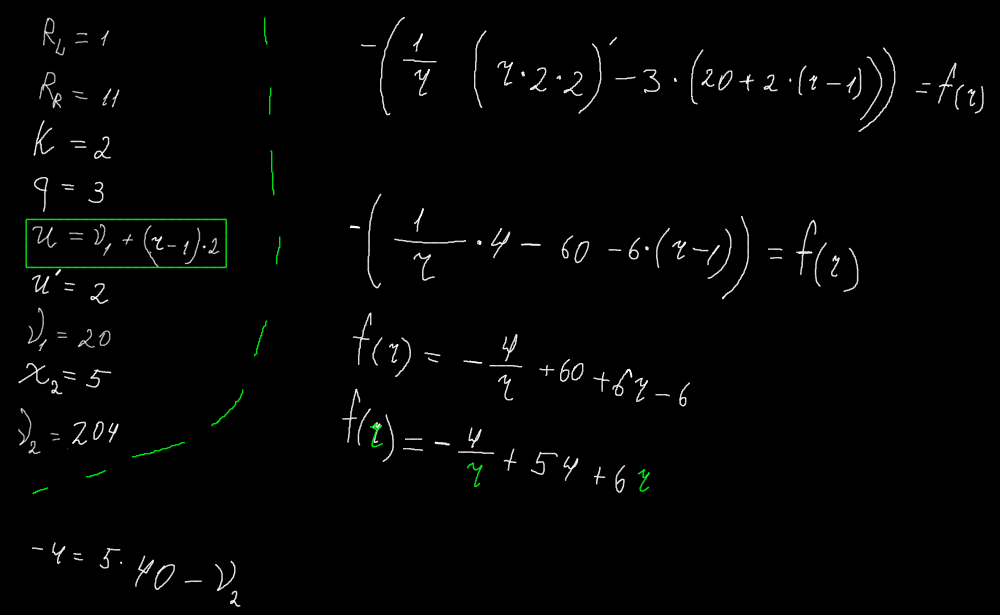 R_L = 1
R_R = 11
K = 2
q = 3
u = ν₁ + (r-1)·2
u' = 2
ν₁ = 20
x₂ = 5
ν₂ = 204
-4 = 5·40 - ν₂
-(1/r (r·2·2)' - 3·(20+2·(r-1))) = f(r)
-(1/r · 4 - 60 - 6·(r-1)) = f(r)
f(r) = -4/r + 60 + 6r - 6
f(r) = -4/r + 54 + 6r